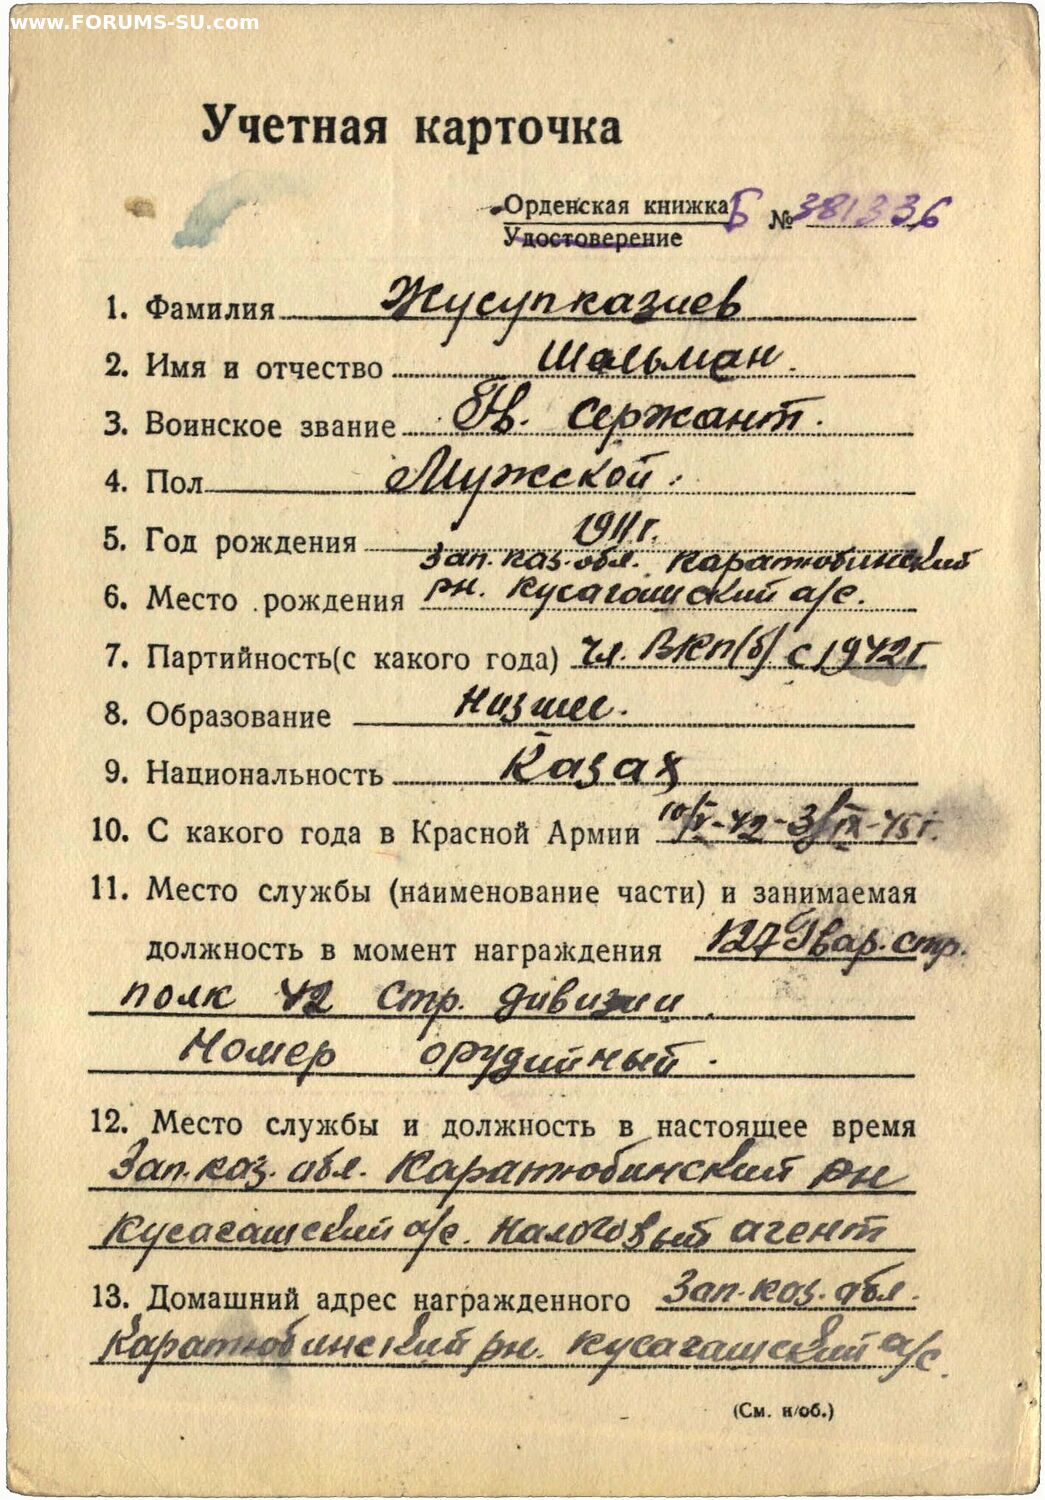 www.FORUMS-SU.com
Учетная карточка
Орденская книжка Б № 381336
Удостоверение
1. Фамилия Жусупказиев
2. Имя и отчество Шальман.
3. Воинское звание Гв. Сержант.
4. Пол Мужской.
5. Год рождения 1911 г.
Зап. каз. обл. Каратюбинский
6. Место рождения рн. Кусагашский а/с.
7. Партийность (с какого года) чл. ВКП(б) с 1942 г
8. Образование низшее.
9. Национальность Казах
10. С какого года в Красной Армии 10/V-42-3/IX-45 г.
11. Место службы (наименование части) и занимаемая
должность в момент награждения 127 Гвар. стр.
полк 42 стр. дивизии.
Номер орудийный.
12. Место службы и должность в настоящее время
Зап. каз. обл. Каратюбинский рн
Кусагашский а/с. налоговый агент
13. Домашний адрес награжденного Зап. каз. обл.
Каратюбинский рн. Кусагашский а/с.
(См. н/об.)